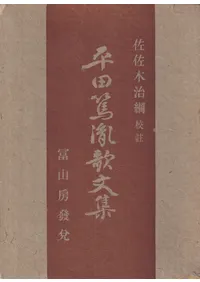 佐佐木治綱 校註
平田篤胤歌文集
冨山房發兌